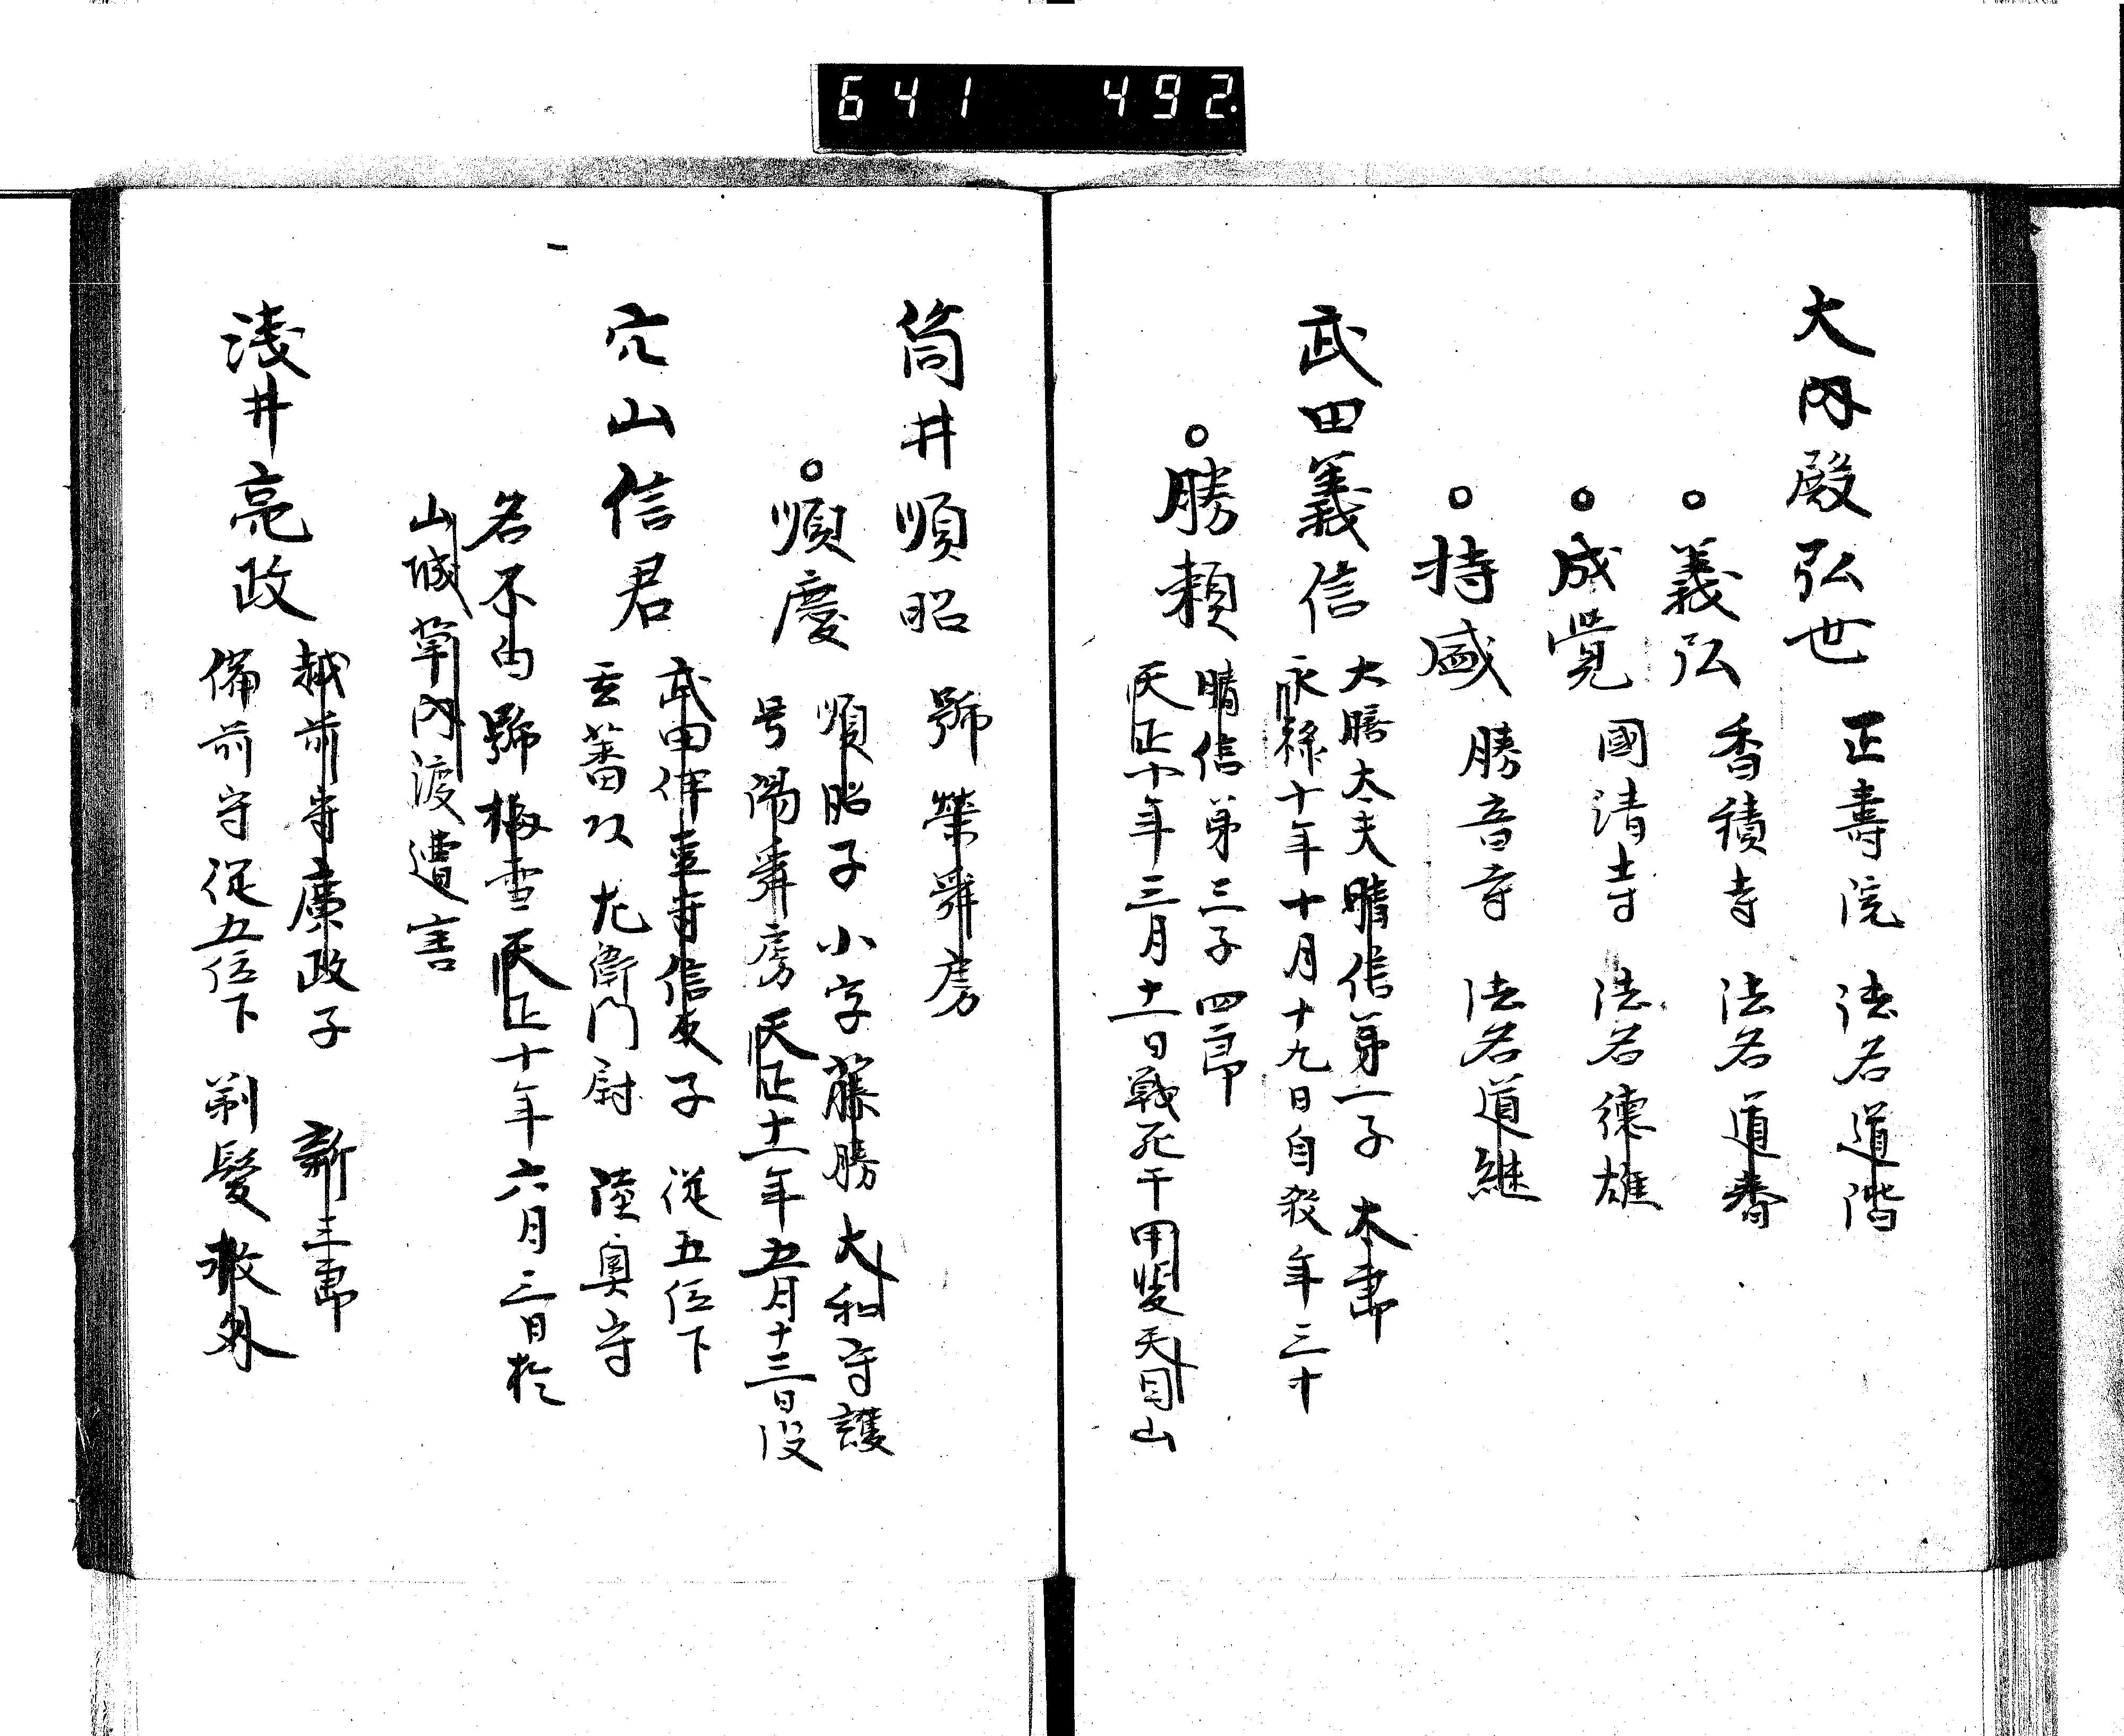 641 492
大内殿弘世 正壽院 法名道階
○義弘 香積寺 法名道香
○成覚 國清寺 法名德雄
○持盛 勝音寺 法名道継
武田義信 大膳大夫晴信第一子 太郎
永祿十年十月十九日自殺年三十
○勝頼 晴信第三子 四郎
天正十年三月十一日戰死于甲斐天目山
筒井順昭 號榮舜房
○順慶 順昭子 小字藤勝 大和守護
号陽舜房 天正十二年五月十三日没
穴山信君 武田伊豆守信友子 従五位下
玄蕃頭 左衛門尉 陸奥守
名不白 號梅雪 天正十年六月三日於
山城草内渡遭害
浅井亮政 越前守廣政子 新三郎
備前守従五位下 剃髪 救外